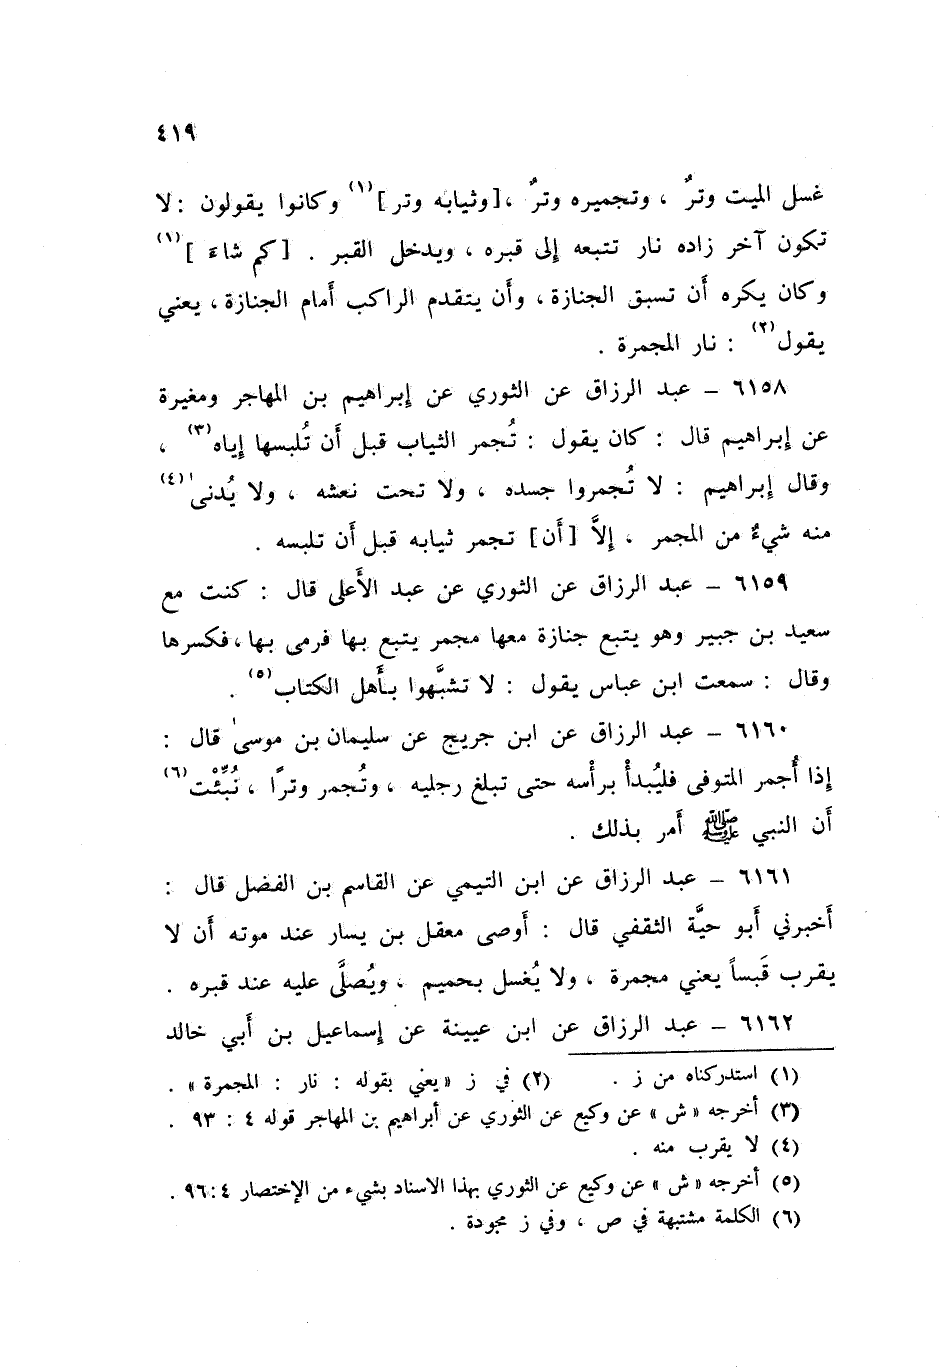 ٤١٩
غسل الميت وترٌ ، وتجميره وترٌ ،[وثيابه وتر](١) وكانوا يقولون : لا
تكون آخر زاده نار تتبعه إلى قبره ، ويدخل القبر . [كم شاءَ ](١)
وكان يكره أن تسبق الجنازة ، وأن يتقدم الراكب أمام الجنازة ، يعني
يقول(٢) : نار المجمرة .
٦١٥٨ – عبد الرزاق عن الثوري عن إبراهيم بن المهاجر ومغيرة
عن إبراهيم قال : كان يقول : تُجمر الثياب قبل أن تُلبسها إياه(٣) ،
وقال إبراهيم : لا تُجمروا جسده ، ولا تحت نعشه ، ولا يُدنىٰ(٤)
منه شيءٌ من المجمر ، إلاَّ [أن] تجمر ثيابه قبل أن تلبسه .
٦١٥٩ – عبد الرزاق عن الثوري عن عبد الأَعلى قال : كنت مع
سعيد بن جبير وهو يتبع جنازة معها مجمر يتبع بها فرمى بها ، فكسرها
وقال : سمعت ابن عباس يقول : لا تشبَّهوا بأَهل الكتاب(٥) .
٦١٦٠ – عبد الرزاق عن ابن جريج عن سليمان بن موسىٰ قال :
إذا أُجمر المتوفى فليُبدأْ برأْسه حتى تبلغ رجليه ، وتُجمر وترًا ، نُبِّئْت(٦)
أن النبي ﷺ أمر بذلك .
٦١٦١ – عبد الرزاق عن ابن التيمي عن القاسم بن الفضل قال :
أخبرني أَبو حيَّة الثقفي قال : أَوصى معقل بن يسار عند موته أن لا
يقرب قَبساً يعني مجمرة ، ولا يُغسل بحميم ، ويُصلَّى عليه عند قبره .
٦١٦٢ – عبد الرزاق عن ابن عيينة عن إسماعيل بن أَبي خالد
(١) استدركناه من ز . (٢) في ز « يعني بقوله : نار : المجمرة » .
(٣) أخرجه « ش » عن وكيع عن الثوري عن أبراهيم بن المهاجر قوله ٤ : ٩٣ .
(٤) لا يقرب منه .
(٥) أخرجه « ش » عن وكيع عن الثوري بهذا الاسناد بشيء من الإختصار ٤ :٩٦ .
(٦) الكلمة مشتبهة في ص ، وفي ز مجودة .